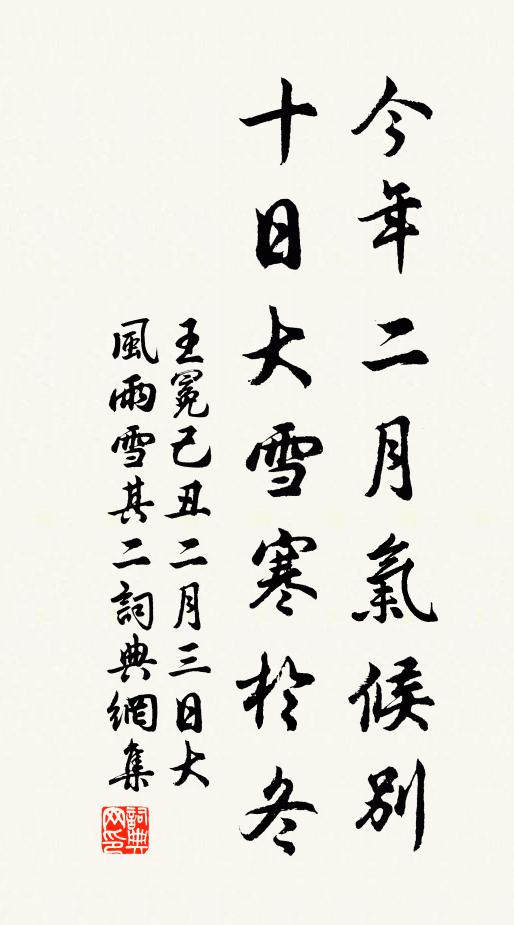 今年二月氣候別
十日大雪寒於冬
王冕己丑二月三日大
風雨雪其二詞典網集
詞典
网印